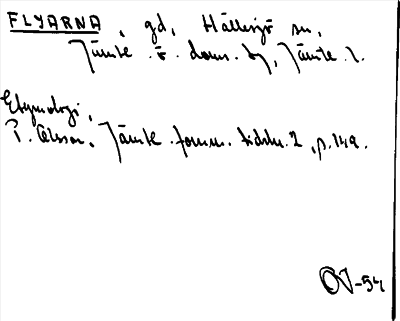 FLYARNA, gd, Hällesjö sn,
Jämtl. ö. doms. bg, Jämtl. l.
Etymologi,
P. Olsson, Jämtl. fornm. tidskr. 2, p. 149.
OJ-54